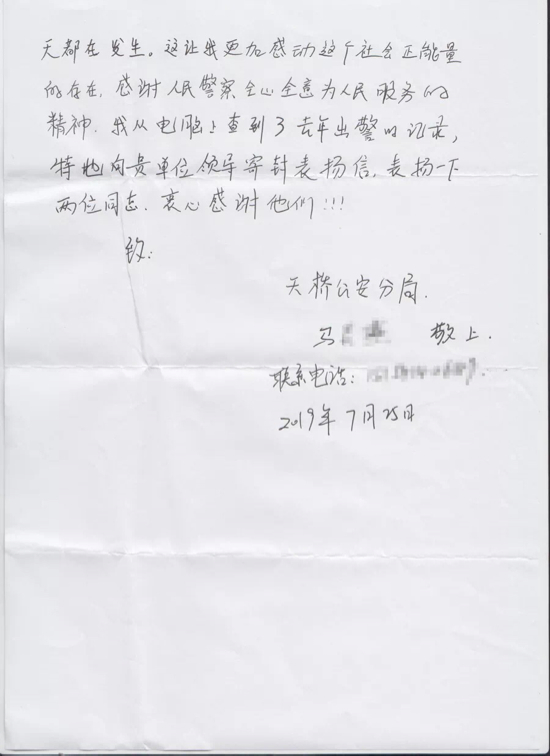 天都在发生。这让我更加感动这个社会正能量
的存在，感谢人民警察全心全意为人民服务的
精神。我从电脑上查到了去年出警的记录，
特地向贵单位领导寄封表扬信，表扬一下
两位同志。衷心感谢他们!!!
致：
天桥公安分局.
马 敬上.
联系电话：
2019年7月25日